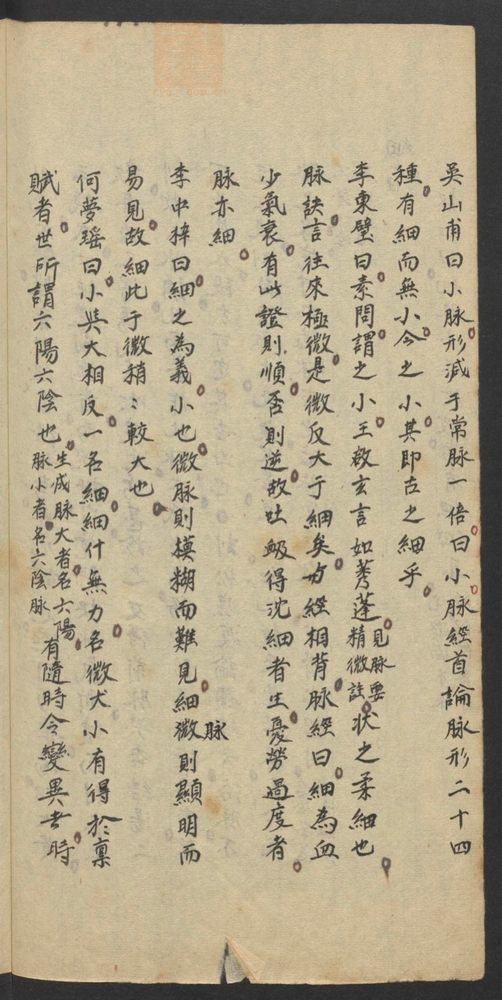 吳山甫曰小脉形減于常脉一倍曰小脉經首論脉形二十四
種有細而無小今之小其即古之細乎
李東璧曰素問謂之小王啟玄言如莠蓬見脉要精微註狀之柔細也
脉訣言往來極微是微反大于細矣与經相背脉經曰細為血
少氣衰有此證則順否則逆故吐衂得沈細者生憂勞過度者
脉亦細
李中梓曰細之為義小也微脉則摸糊而難見細微脉則顯明而
易見故細此于微稍〻較大也
何夢瑤曰小與大相反一名細細什無力名微大小有得於禀
賦者世所謂六陽六陰也生成脉大者名六陽脉小者名六陰脉有隨時令變異者時